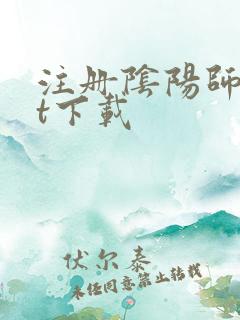 注册陰陽師
t下載
伏尔泰
未经同意禁止转载